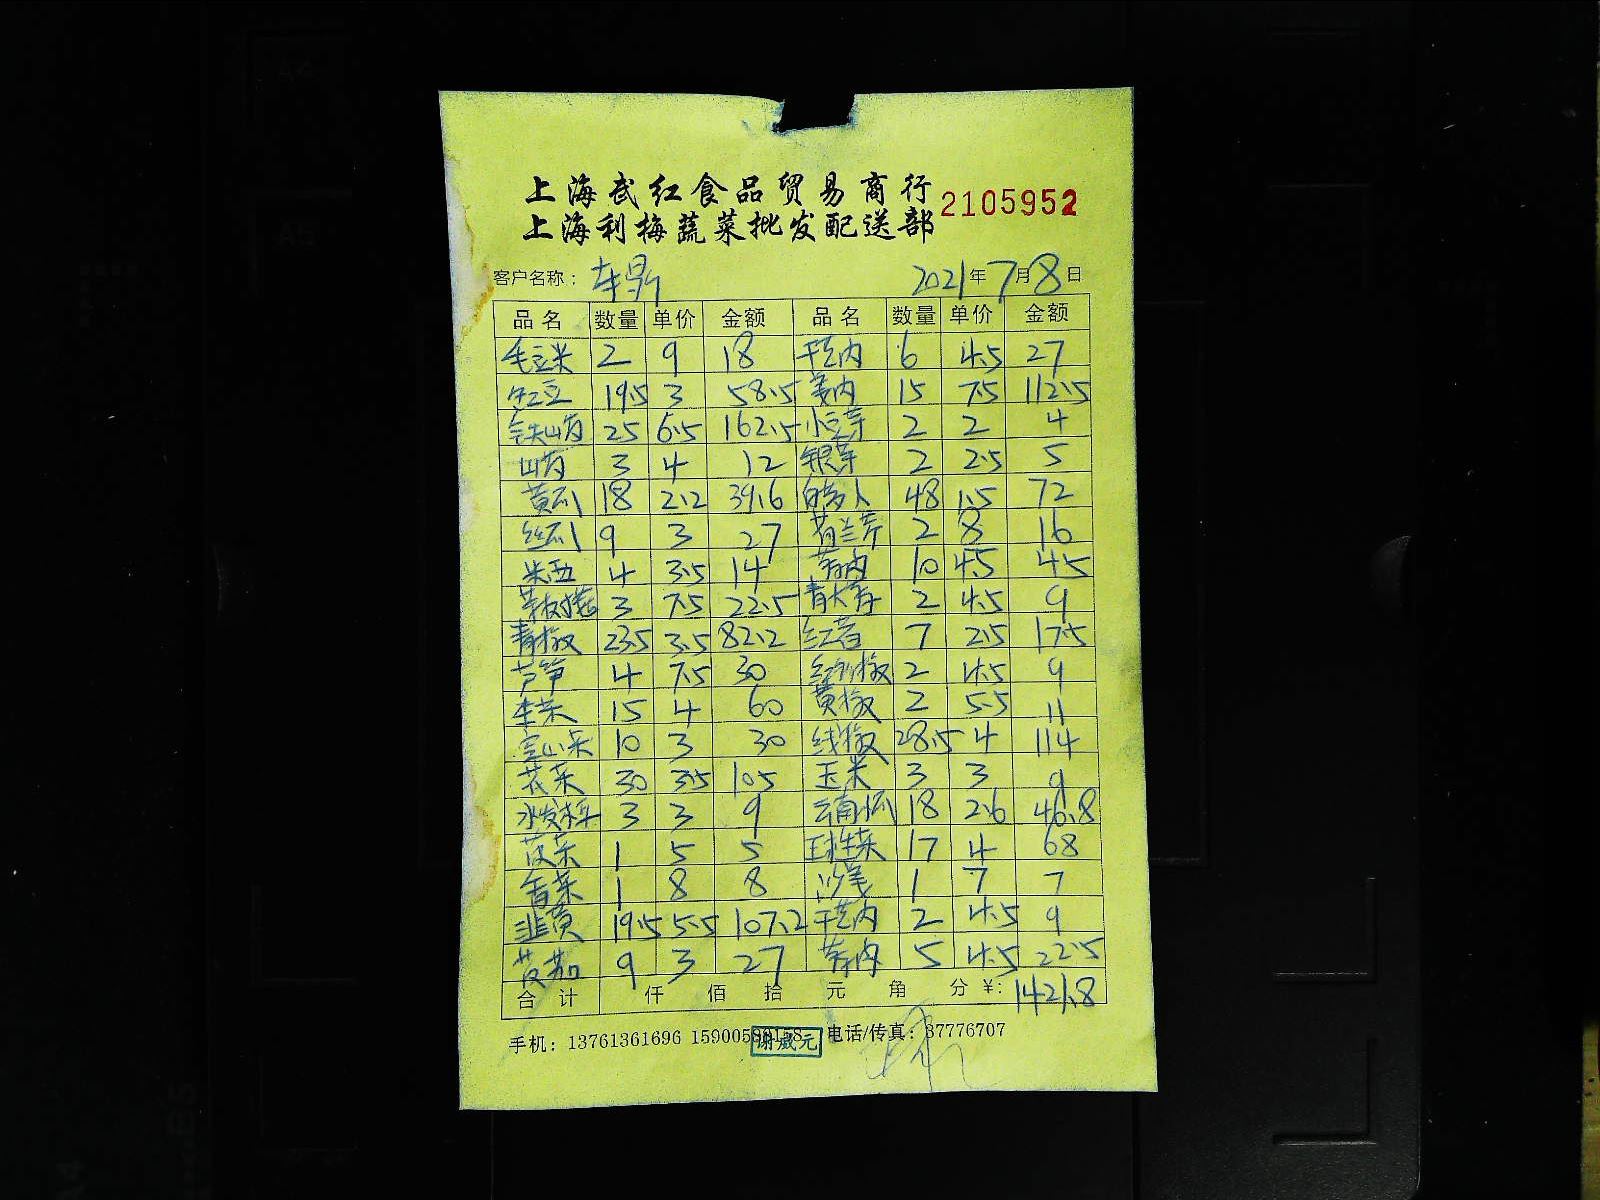 上海武红食品贸易商行
上海利梅蔬菜批发配送部 2105952
客户名称： 2021年7月8日
品名 数量 单价 金额 品名 数量 单价 金额
毛豆米 2 9 18 干芝内 6 4.5 27
缸豆 19.5 3 58.5 姜内 15 7.5 112.5
铁山药 25 6.5 162.5 小豆芽 2 2 4
山药 3 4 12 银芽 2 2.5 5
黄瓜 18 2.2 39.6 白萝卜 48 1.5 72
丝瓜 9 3 27 荷兰芹 2 8 16
米西 4 3.5 14 蒜内 10 4.5 45
茶树菇 3 7.5 22.5 青大蒜 2 4.5 9
青椒 23.5 3.5 82.2 红苕 7 2.5 17.5
芦笋 4 7.5 30 红别椒 2 4.5 9
生菜 15 4 60 黄椒 2 5.5 11
空心菜 10 3 30 线椒 28.5 4 114
花菜 30 3.5 105 玉米 3 3 9
水发木耳 3 3 9 云南小瓜 18 2.6 46.8
苋菜 1 5 5 生菜 17 4 68
香菜 1 8 8 沙姜 1 7 7
韭黄 19.5 5.5 107.2 干芝内 2 4.5 9
茄 9 3 27 蒜内 5 4.5 22.5
合计 仟 佰 拾 元 角 分 ¥: 1421.8
手机：13761361696 电话/传真：37776707
谢威元